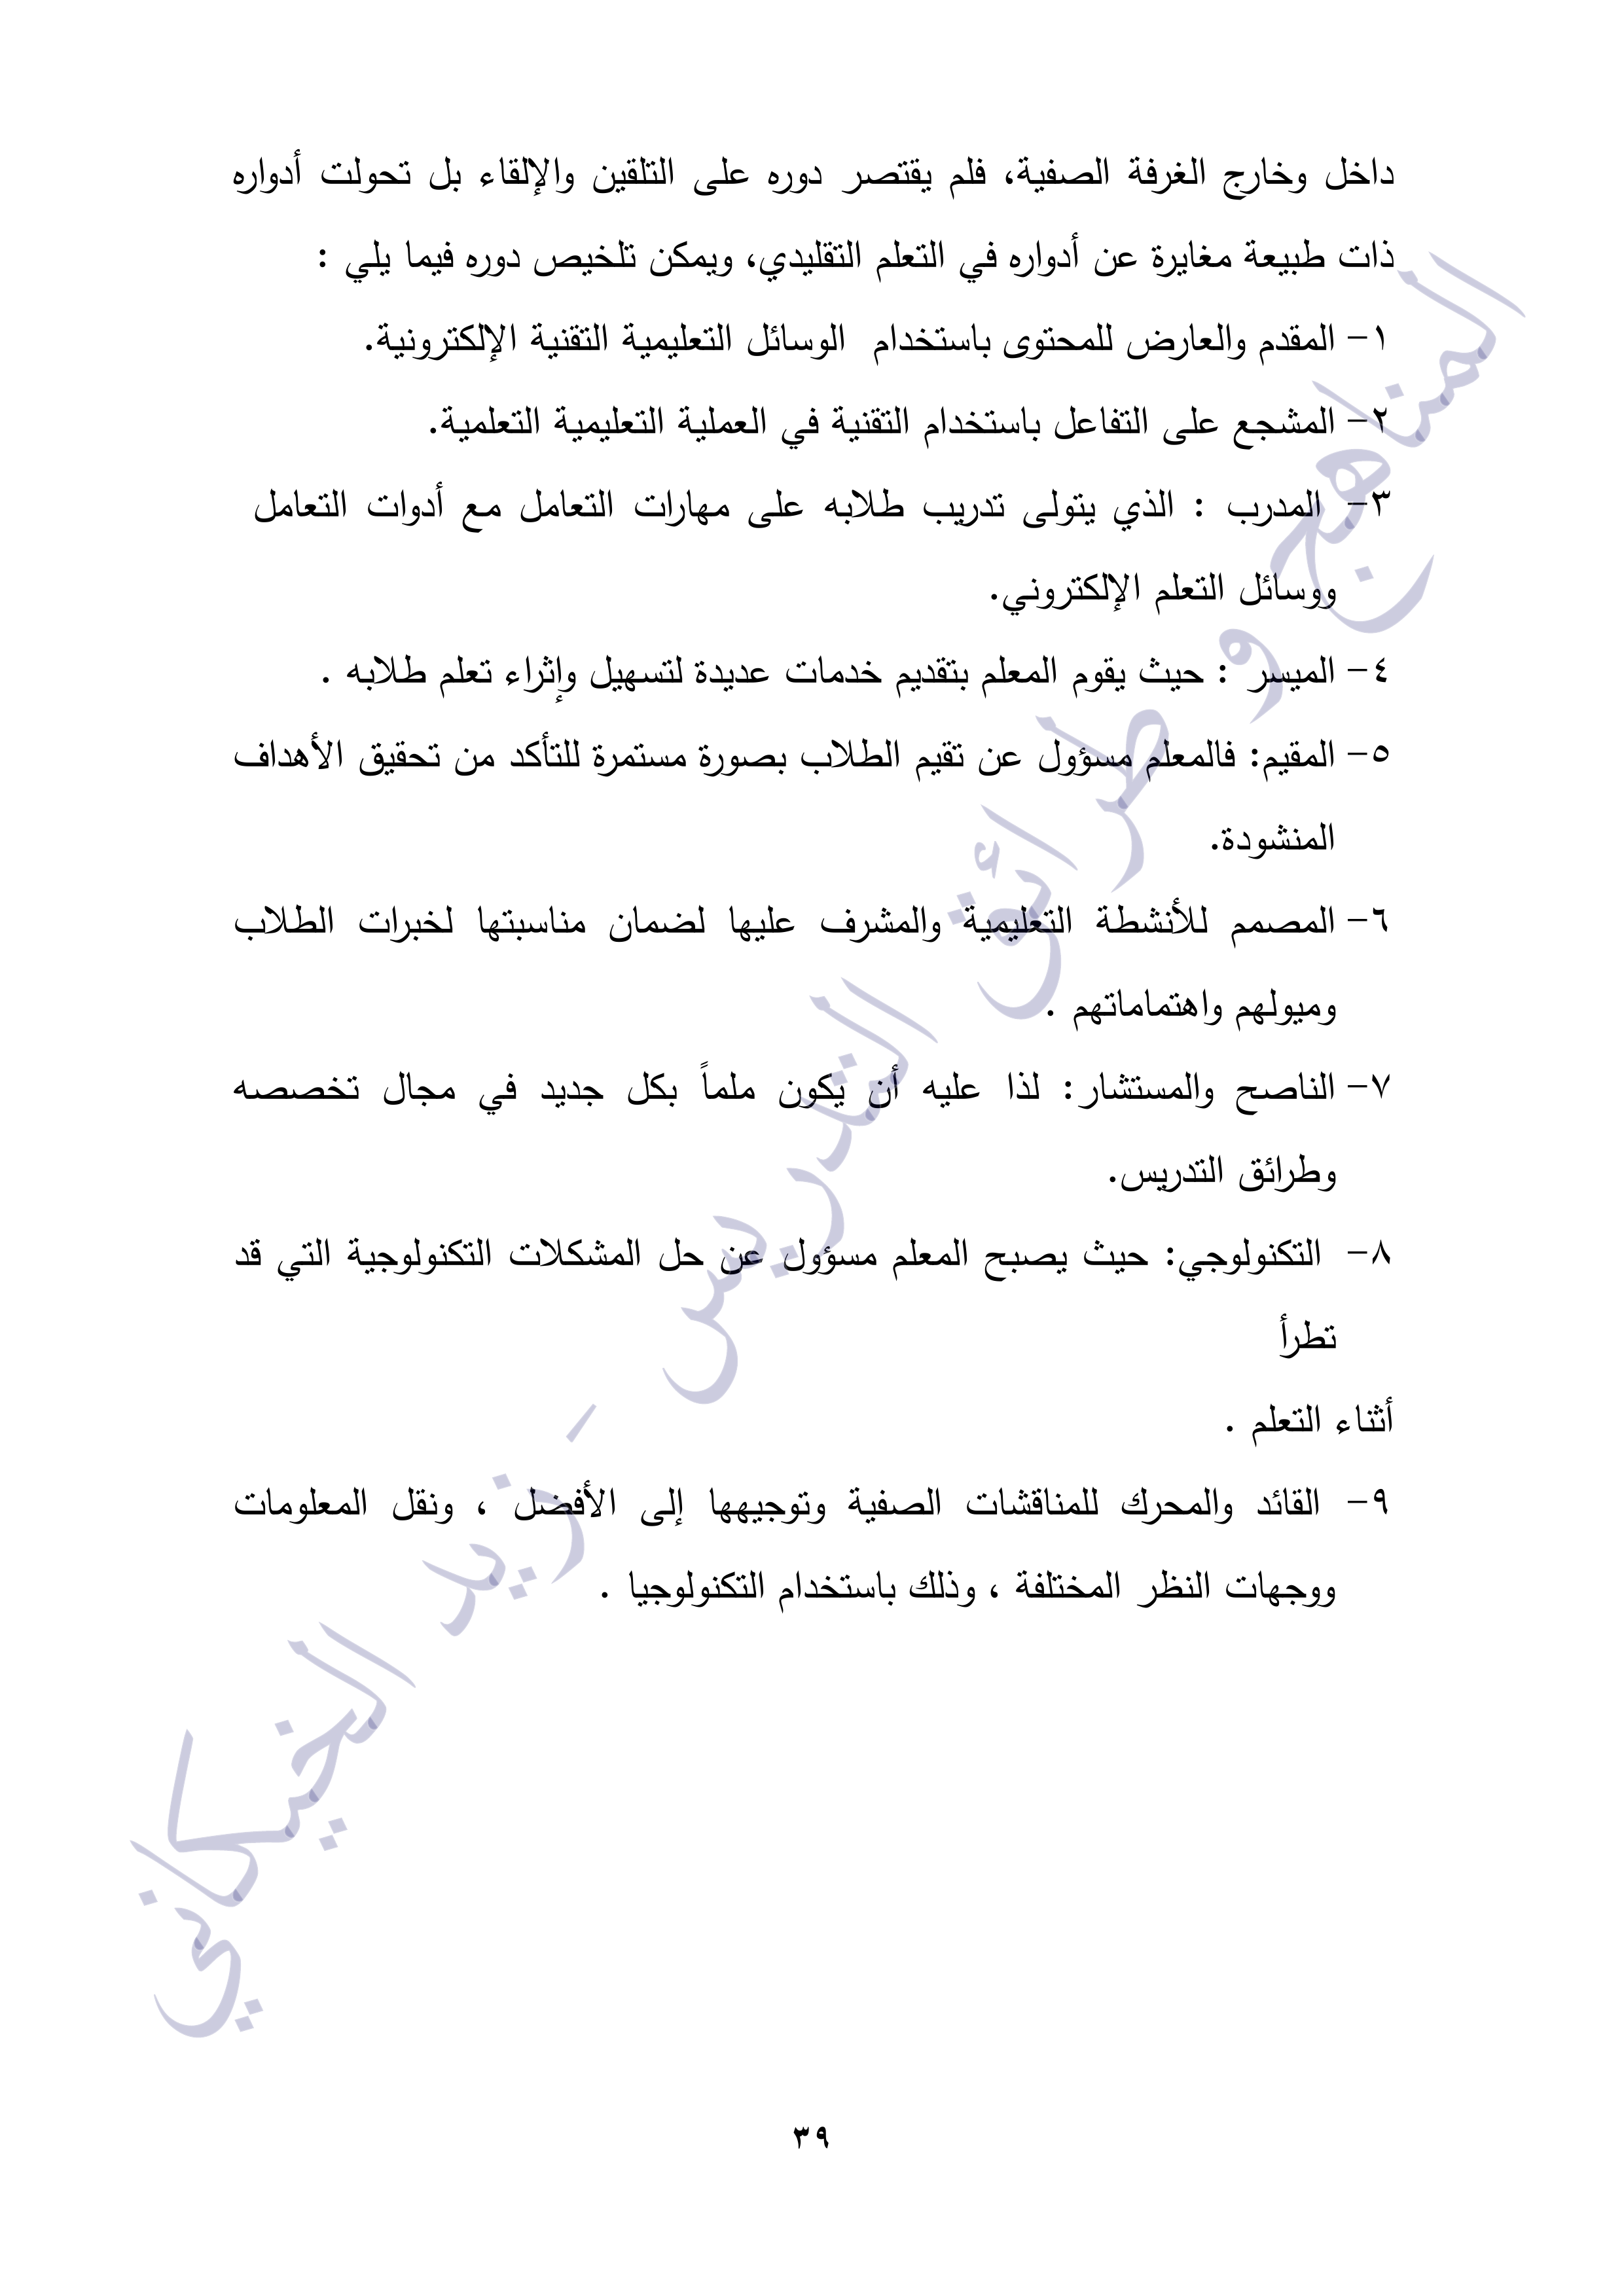 داخل وخارج الغرفة الصفية، فلم يقتصر دوره على التلقين والإلقاء بل تحولت أدواره
ذات طبيعة مغايرة عن أدواره في التعلم التقليدي، ويمكن تلخيص دوره فيما يلي :
١- المقدم والعارض للمحتوى باستخدام الوسائل التعليمية التقنية الإلكترونية.
٢- المشجع على التفاعل باستخدام التقنية في العملية التعليمية التعلمية.
٣- المدرب : الذي يتولى تدريب طلابه على مهارات التعامل مع أدوات التعامل
ووسائل التعلم الإلكتروني.
٤- الميسر : حيث يقوم المعلم بتقديم خدمات عديدة لتسهيل وإثراء تعلم طلابه .
٥- المقيم: فالمعلم مسؤول عن تقيم الطلاب بصورة مستمرة للتأكد من تحقيق الأهداف
المنشودة.
٦- المصمم للأنشطة التعليمية والمشرف عليها لضمان مناسبتها لخبرات الطلاب
وميولهم واهتماماتهم .
٧- الناصح والمستشار: لذا عليه أن يكون ملماً بكل جديد في مجال تخصصه
وطرائق التدريس.
٨- التكنولوجي: حيث يصبح المعلم مسؤول عن حل المشكلات التكنولوجية التي قد
تطرأ
أثناء التعلم .
٩- القائد والمحرك للمناقشات الصفية وتوجيهها إلى الأفضل ، ونقل المعلومات
ووجهات النظر المختلفة ، وذلك باستخدام التكنولوجيا .
المناهج و طرائق التدريس - زيد الخيكاني
٣٩